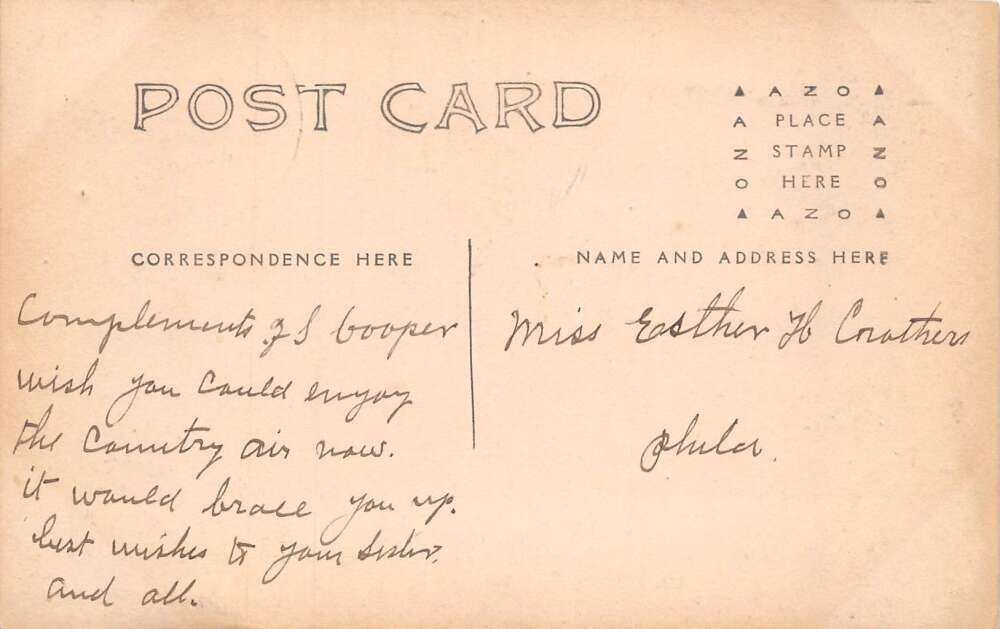 POST CARD
▲ AZO ▲
AZO PLACE STAMP HERE AZO
▲ AZO ▲
CORRESPONDENCE HERE
NAME AND ADDRESS HERE
Complements of S Cooper
wish you could enyoy
the Country air now.
it would brace you up.
best wishes to your sister.
and all.
Miss Esther H Crothers
phila.